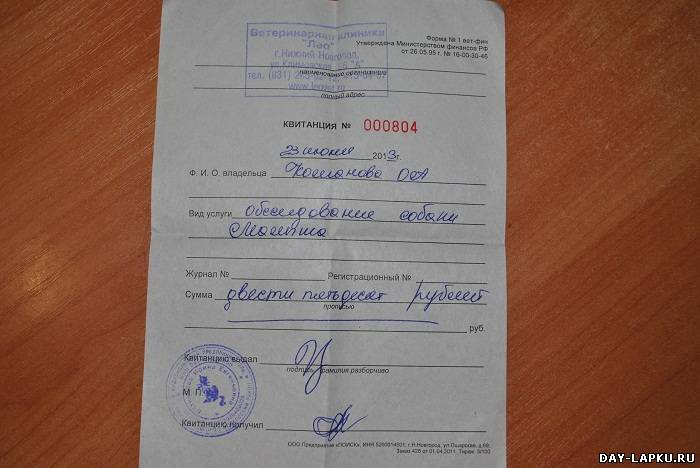 Ветеринарная клиника
"Лео"
г. Нижний Новгород,
www.leovet.ru
Форма № 1 вет-фин
Утверждена Министерством финансов РФ
от 26.05.95 г. № 16-00-30-46
наименование организации
полный адрес
КВИТАНЦИЯ № 000804
23 июня 2013г.
Ф. И. О. владельца
Вид услуги обследование собаки
Журнал № Регистрационный №
Сумма двести пятьдесят рублей
прописью
руб.
Квитанцию выдал
подпись, фамилия разборчиво
М. П.
Квитанцию получил
ООО Предприятие «ПОИСК», г. Н.Новгород, ул.
Заказ 428 от 01.04.2011.
DAY-LAPKU.RU